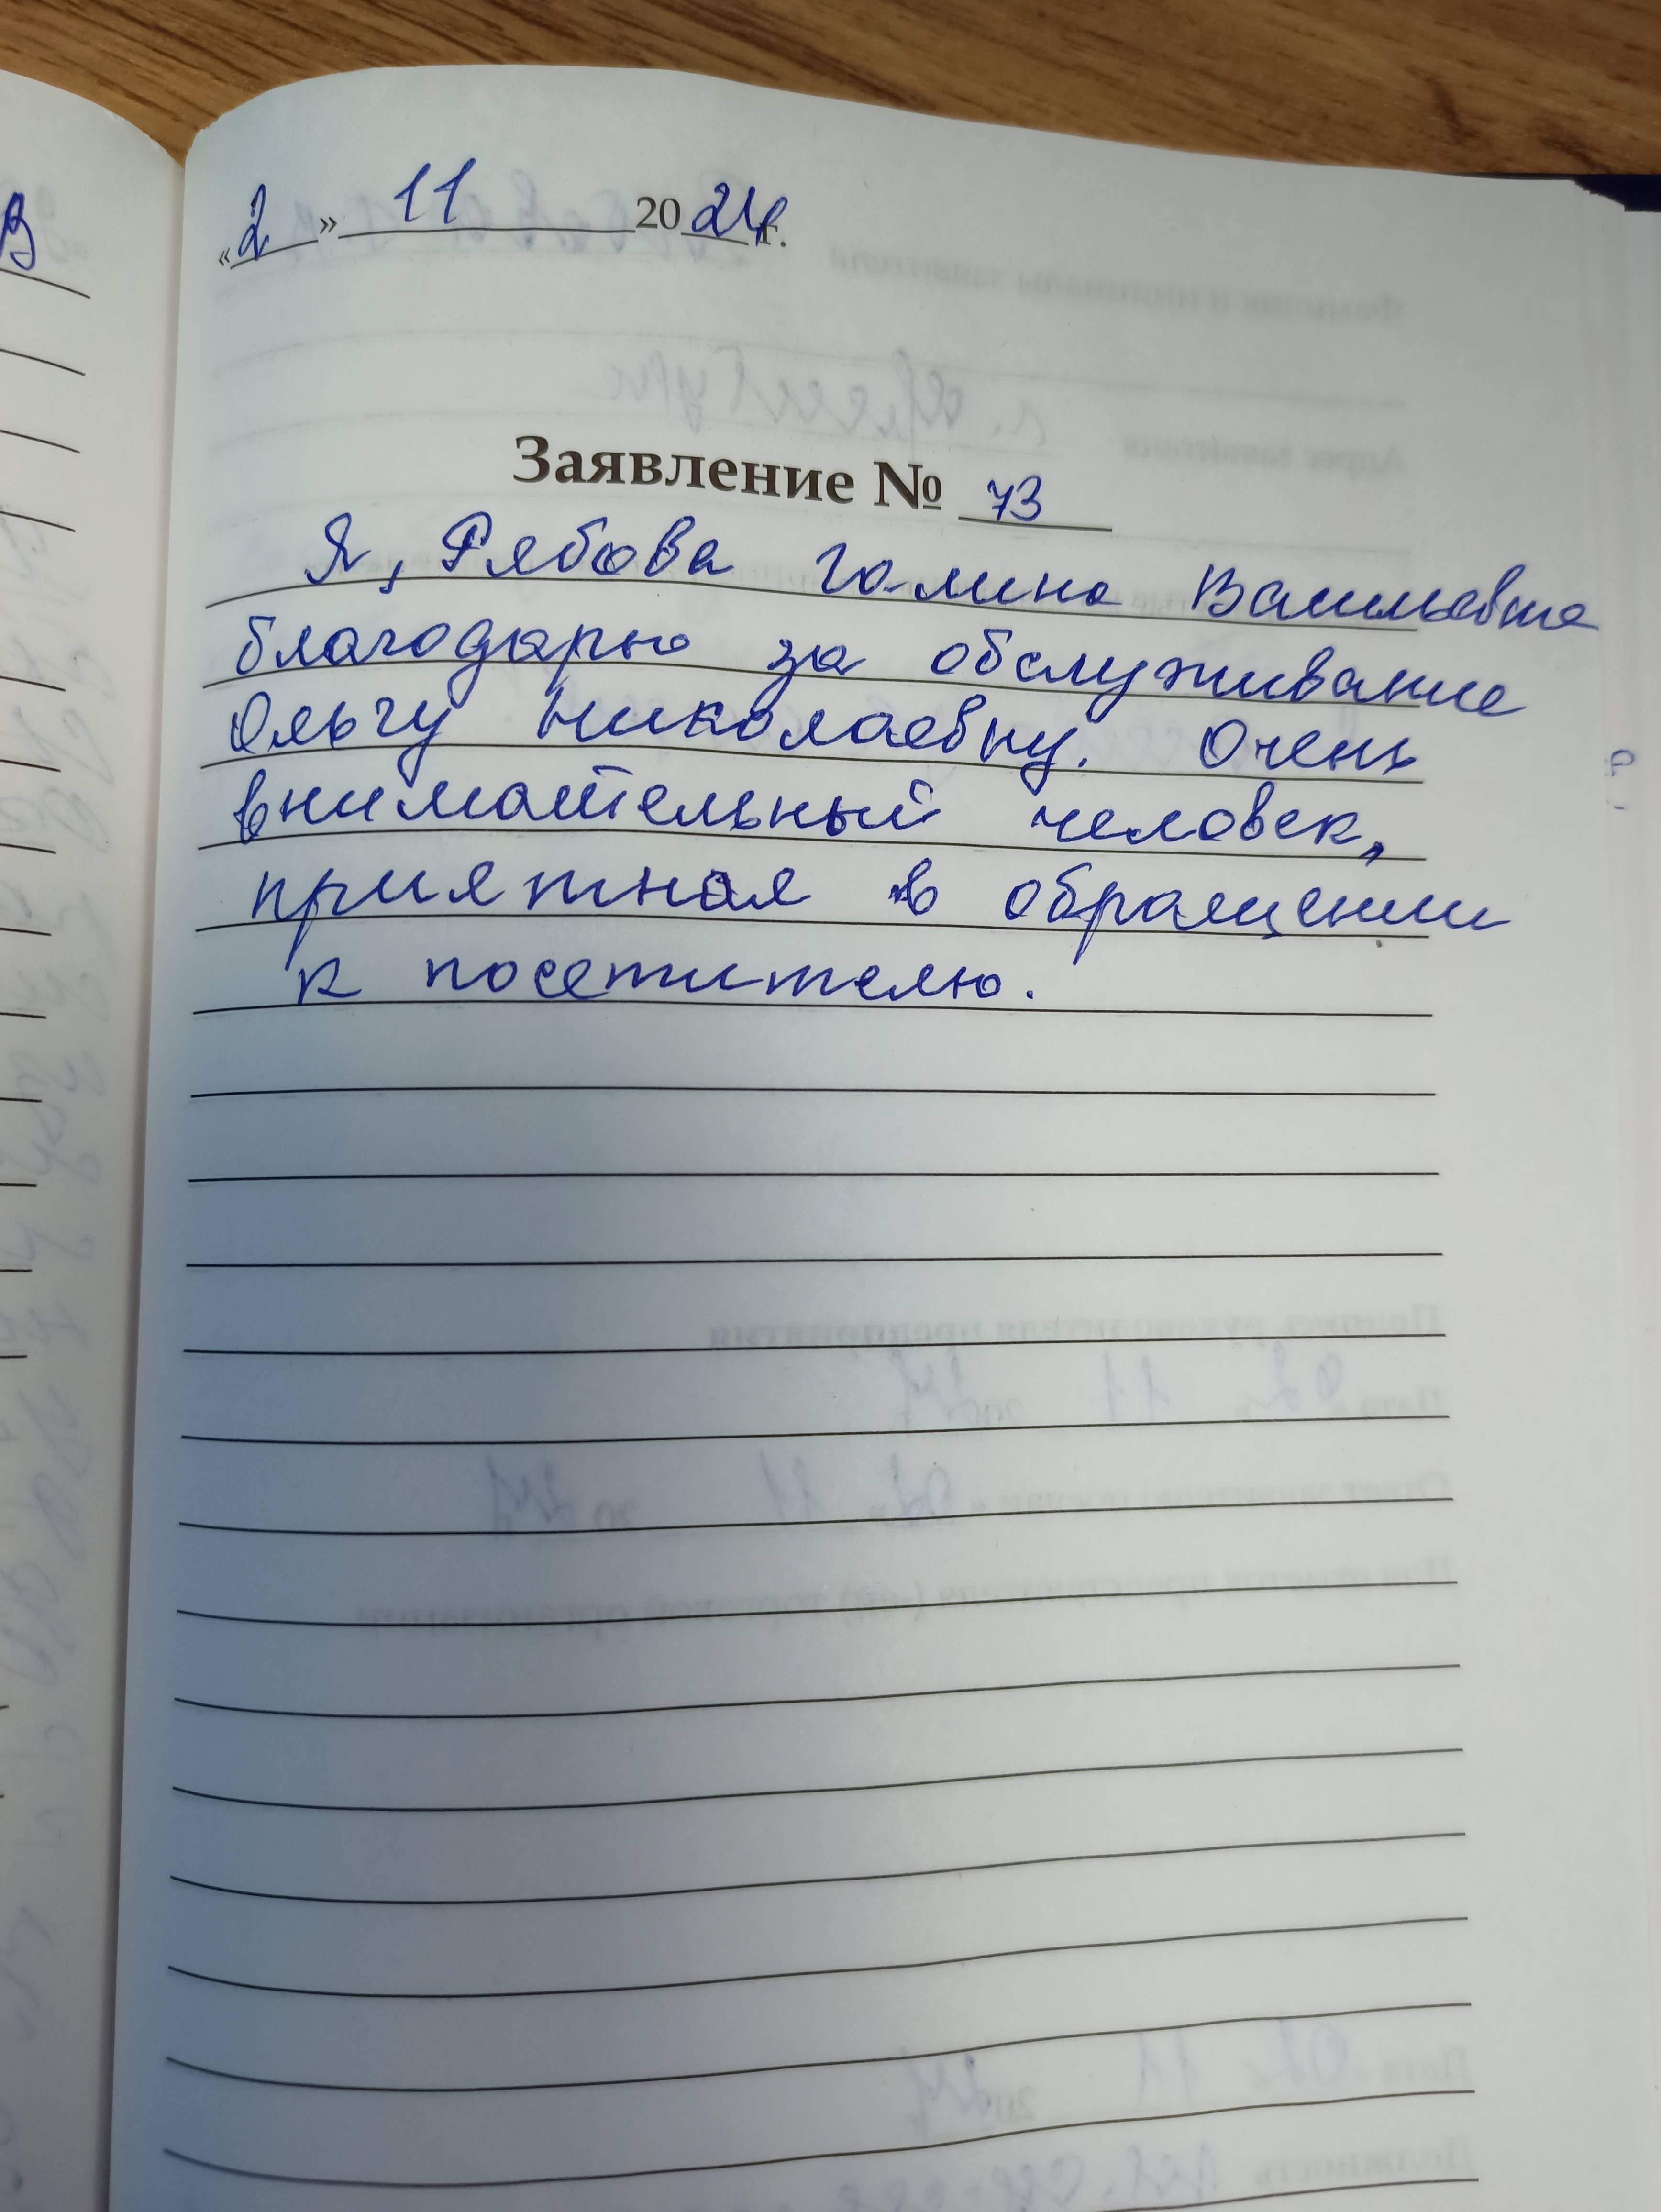 «2» 11 2024г.
Заявление № 73
Я, Рябова Галина Васильевна
благодарю за обслуживание
Ольгу Николаевну. Очень
внимательный человек,
приятная в обращении
к посетителю.